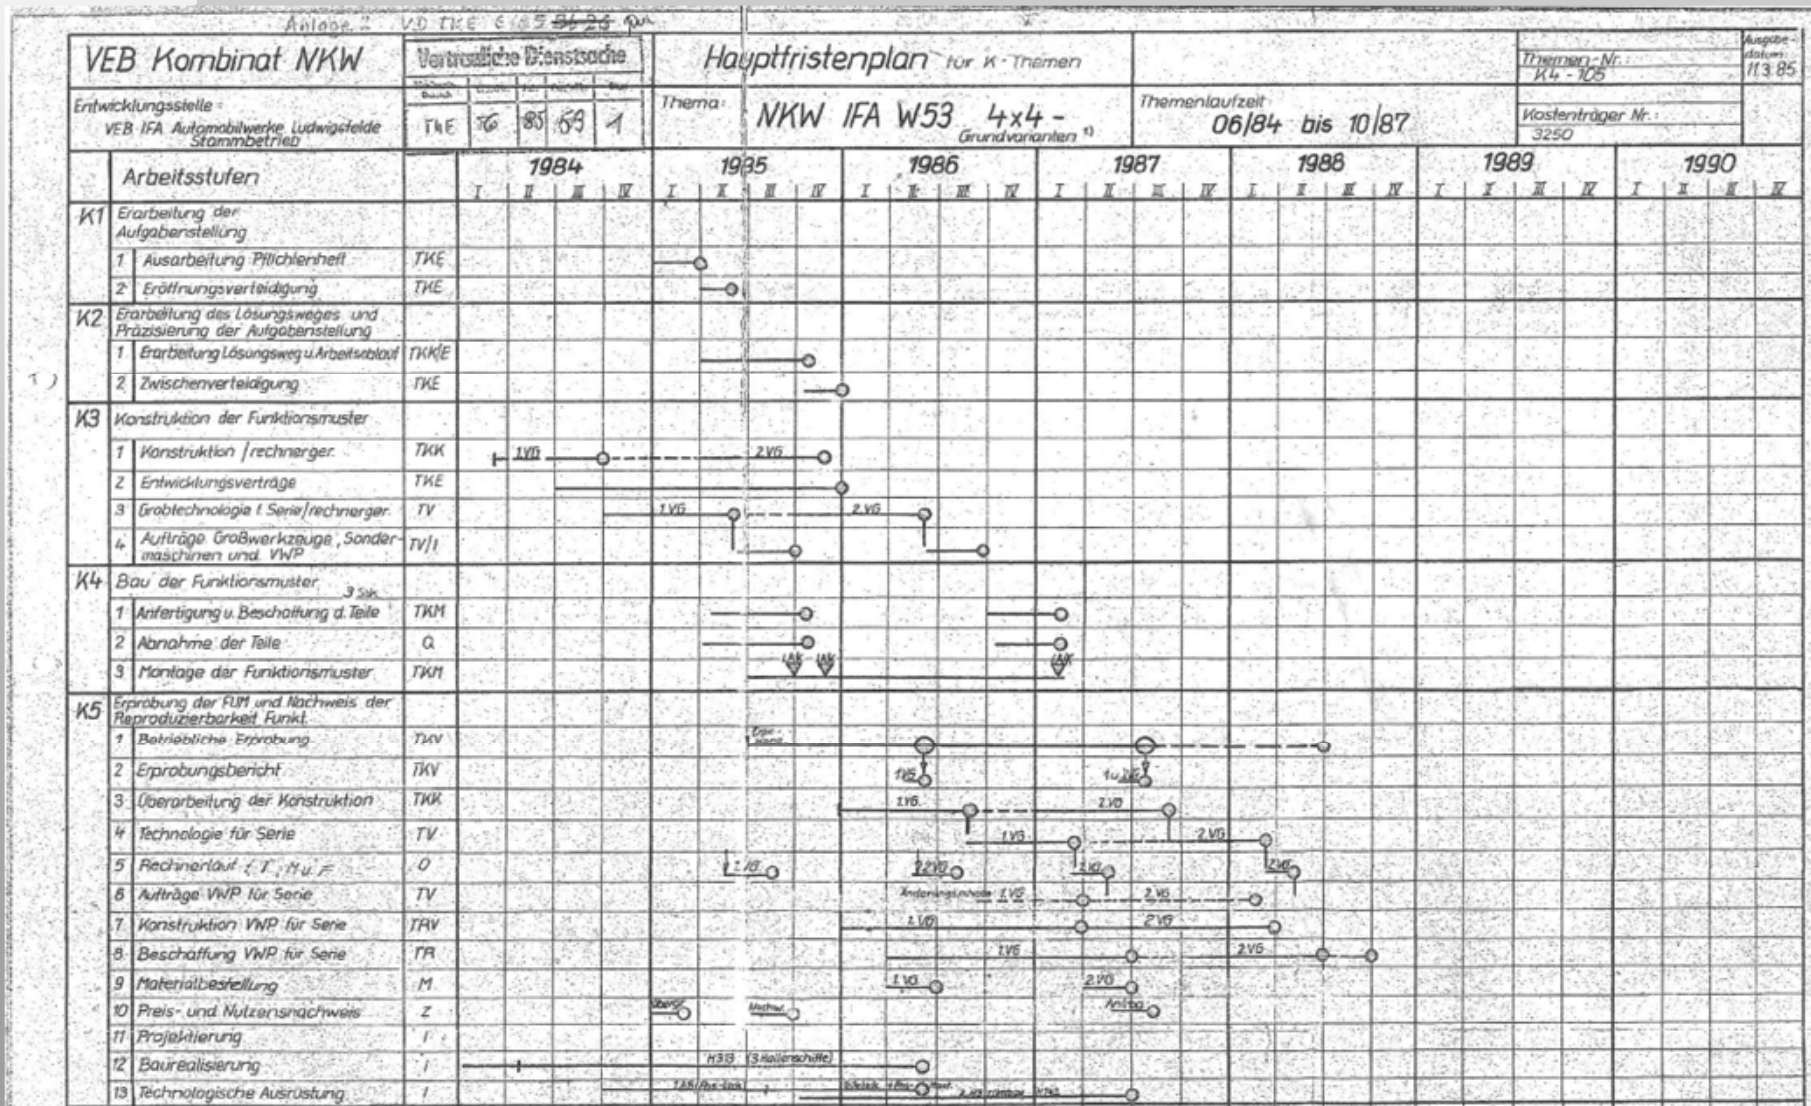 Anlage 2 VD TKE 6/85
VEB Kombinat NKW
Vertrauliche Dienstsache
Hauptfristenplan für K-Themen
Themen-Nr.:
K4-105
Ausgabedatum
11.3.85
Entwicklungsstelle:
VEB IFA Automobilwerke Ludwigsfelde
Stammbetrieb
TKE 76 85 59 1
Thema: NKW IFA W53 4x4-
Grundvarianten 1)
Themenlaufzeit
06/84 bis 10/87
Kostenträger Nr.:
3250
Arbeitsstufen
1984 1985 1986 1987 1988 1989 1990
I II III IV I II III IV I II III IV I II III IV I II III IV I II III IV I II III IV
K1 Erarbeitung der
Aufgabenstellung
1 Ausarbeitung Pflichtenheft TKE
2 Eröffnungsverteidigung TKE
K2 Erarbeitung des Lösungsweges und
Präzisierung der Aufgabenstellung
1 Erarbeitung Lösungsweg u. Arbeitsablauf TKK/E
2 Zwischenverteidigung TKE
K3 Konstruktion der Funktionsmuster
1 Konstruktion / rechnerger. TKK 1.VG 2.VG
2 Entwicklungsverträge TKE
3 Grobtechnologie f. Serie/rechnerger. TV 1.VG 2.VG
4 Aufträge Großwerkzeuge, Sonder-
maschinen und VWP TV/I
K4 Bau der Funktionsmuster
3 Stk
1 Anfertigung u. Beschaffung d. Teile TKM
2 Abnahme der Teile Q
3 Montage der Funktionsmuster TKM
K5 Erprobung der FUM und Nachweis der
Reproduzierbarkeit Funkt.
1 Betriebliche Erprobung TKV
2 Erprobungsbericht TKV 1.VG
3 Überarbeitung der Konstruktion TKK 1.VG 2.VG
4 Technologie für Serie TV 1.VG 2.VG
5 Rechnerlauf O 2.VG 2.VG
6 Aufträge VWP für Serie TV 1.VG 2.VG
7 Konstruktion VWP für Serie TRV 1.VG 2.VG
8 Beschaffung VWP für Serie TR 1.VG 2.VG
9 Materialbestellung M 1.VG 2.VG
10 Preis- und Nutzensnachweis Z
11 Projektierung I
12 Baurealisierung I H313 (3 Hallenschiffe)
13 Technologische Ausrüstung I